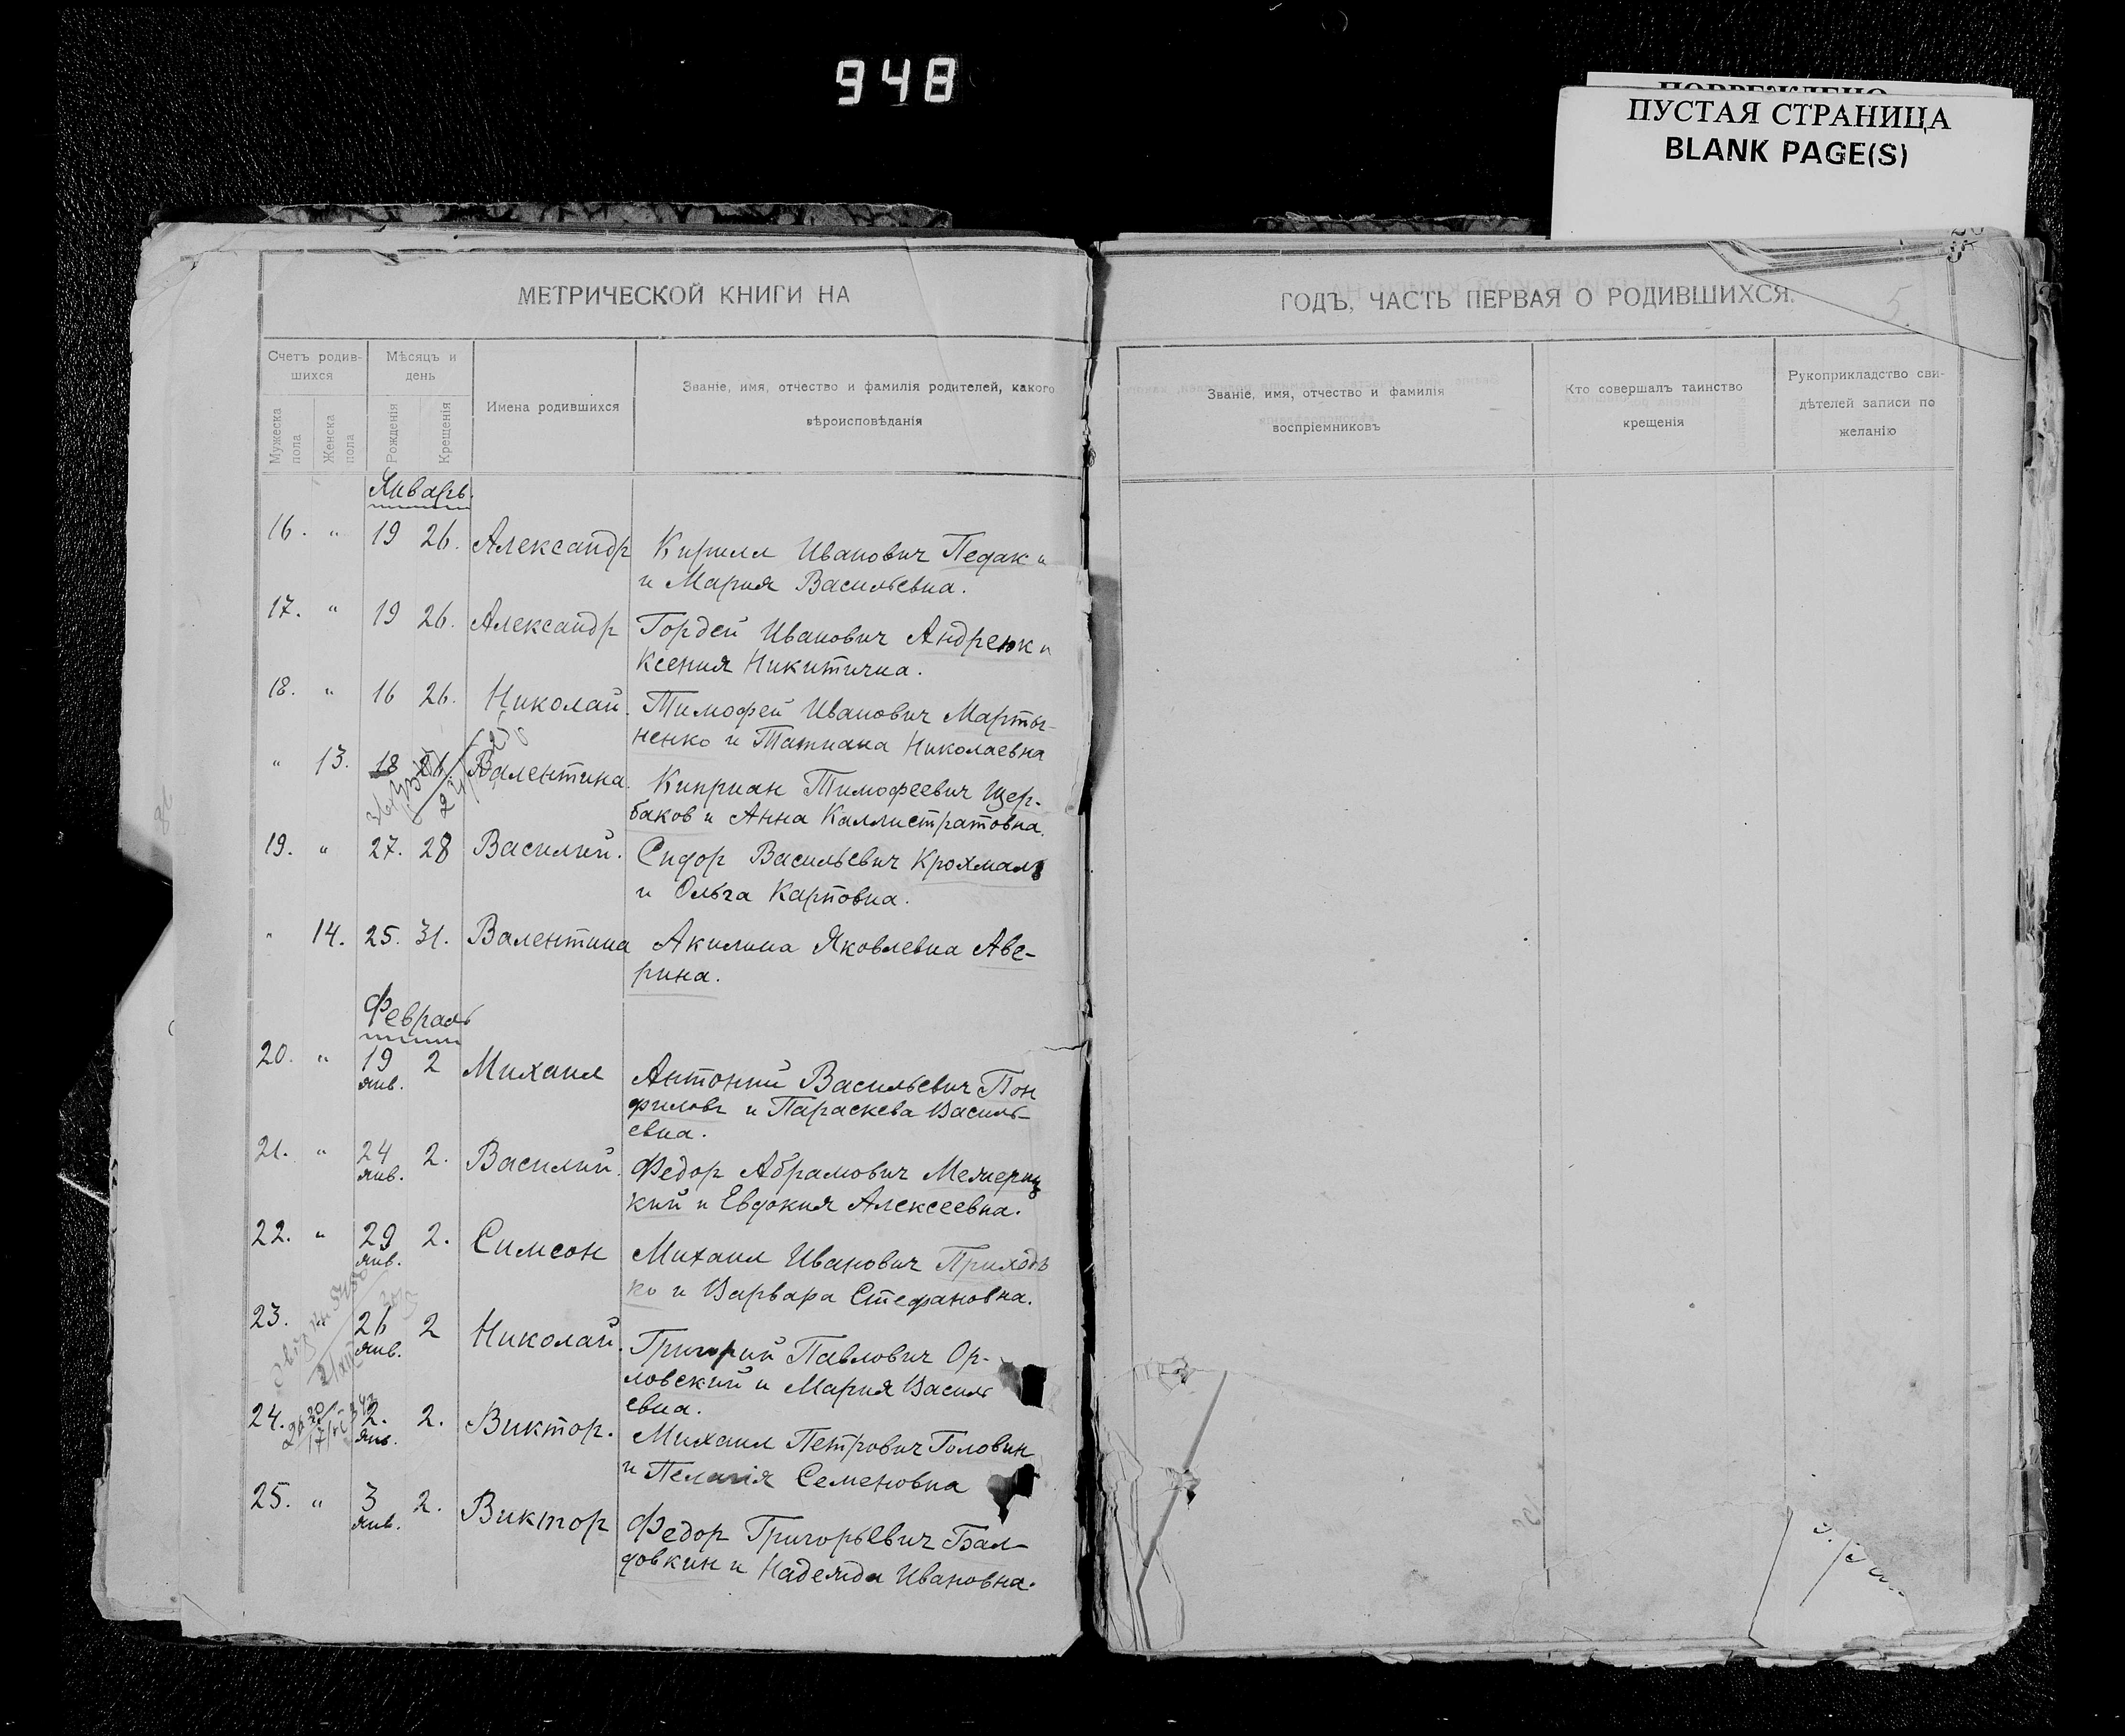 948
ПУСТАЯ СТРАНИЦА
BLANK PAGE(S)
МЕТРИЧЕСКОЙ КНИГИ НА
Счетъ родив-
шихся
Мужеска пола
Женска пола
Мѣсяцъ и
день
Рожденія
Крещенія
Имена родившихся
Званіе, имя, отчество и фамилія родителей, какого
вѣроисповѣданія
Январь.
16. " 19 26. Александр Кирилл Иванович Педак и
и Мария Васильевна.
17. " 19 26. Александр Гордей Иванович Андреюк и
Ксения Никитична.
18. " 16 26. Николай. Тимофей Иванович Марты-
ненко и Татиана Николаевна
" 13. 18 26. Валентина. Киприан Тимофеевич Щер-
баков и Анна Каллистратовна.
19. " 27. 28 Василий. Сидор Васильевич Крохмаль
и Ольга Карповна.
" 14. 25. 31. Валентина Акилина Яковлевна Аве-
рина.
Февраль
20. " 19 2 Михаил Антоний Васильевич
янв.
и Параскева Василь-
евна.
21. " 24 2. Василий. Федор Абрамович
янв.
кий и Евдокия Алексеевна.
22. " 29 2. Симеон Михаил Иванович Приходь
янв.
ко и Варвара Стефановна.
23. 26 2 Николай. Григорий Павлович Ор-
янв.
ловский и Мария Василь
евна.
24. 2. 2. Виктор. Михаил Петрович Головин
янв.
и Пелагия Семеновна
25. " 3 2. Виктор Федор Григорьевич Бал-
янв.
довкин и Надежда Ивановна.
ГОДЪ, ЧАСТЬ ПЕРВАЯ О РОДИВШИХСЯ.
5.
Званіе, имя, отчество и фамилія
воспріемниковъ
Кто совершалъ таинство
крещенія
Рукоприкладство сви-
дѣтелей записи по
желанію